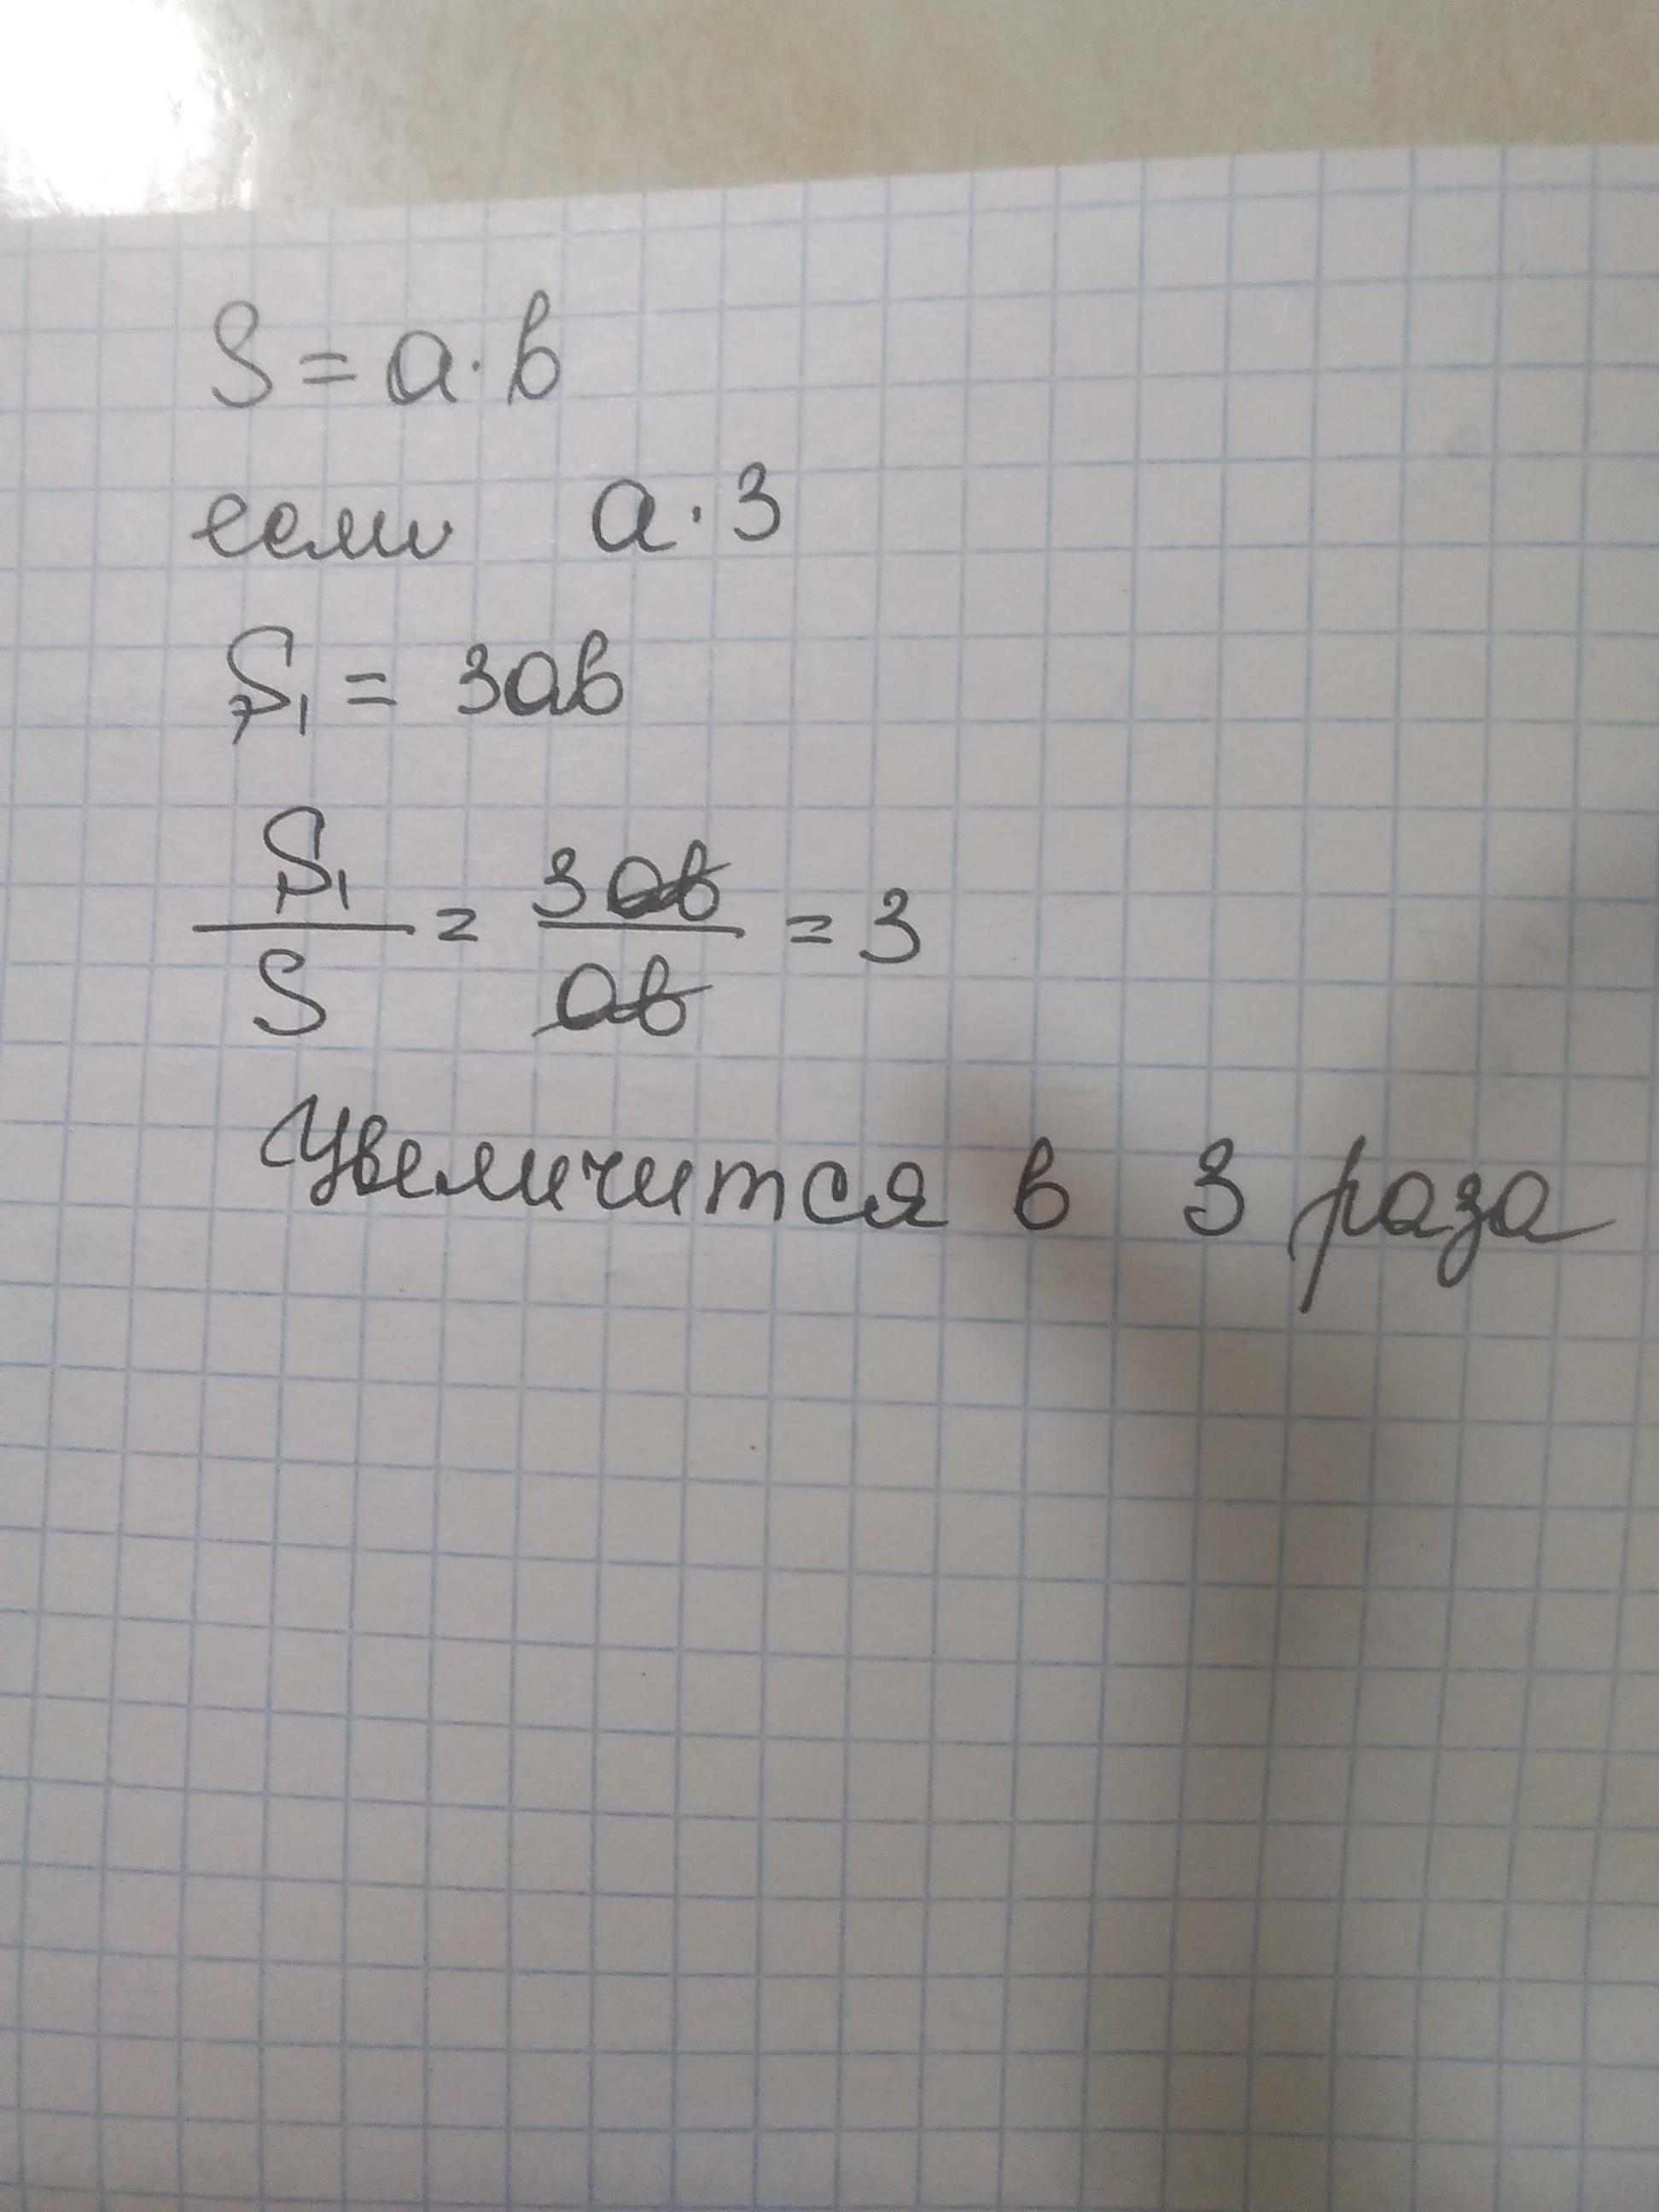 S = a · b
если a · 3
S₁ = 3ab
S₁/S = 3ab/ab = 3
Увеличится в 3 раза